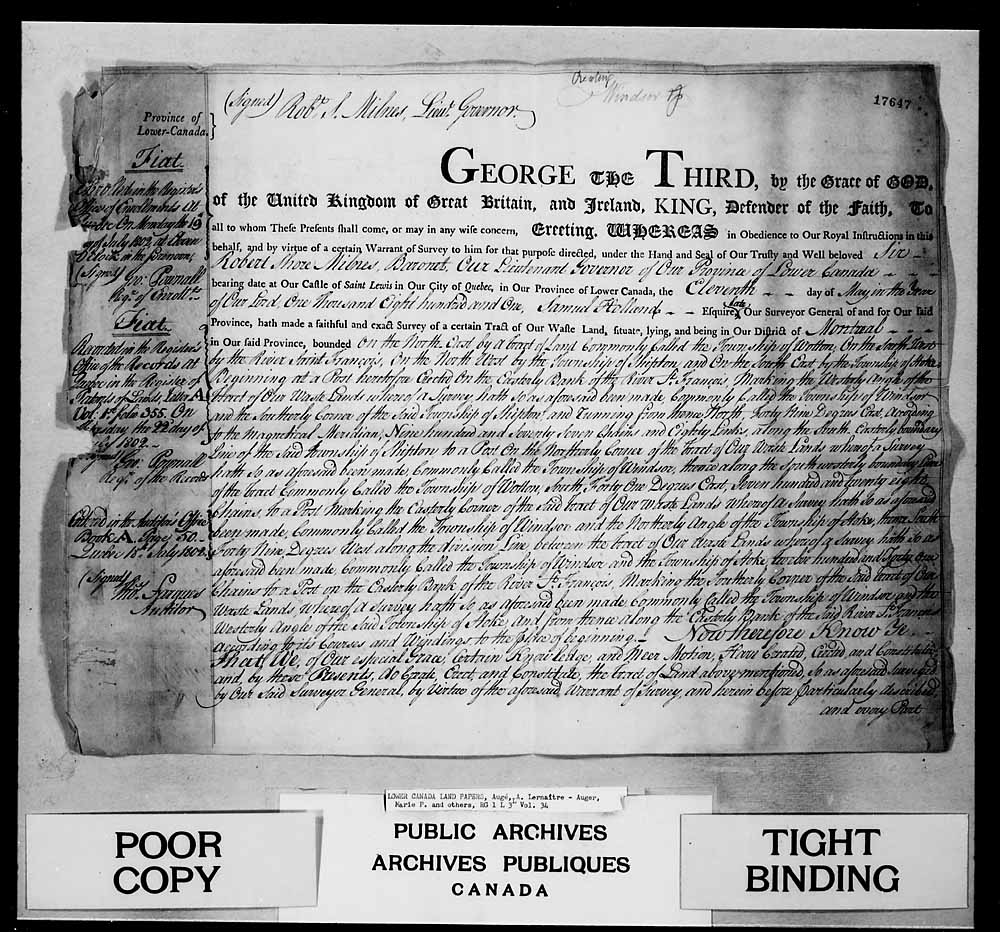 Creating
Windsor Tp
17647
(Signed) Robt. S. Milnes, Lieut. Governor.
Province of
Lower-Canada.
Fiat.
Enrolled in the Register's
Office of Enrollments at
Quebec On Monday the 19
of July 1802, at Eleven
O'Clock in the forenoon,
(Signed) Geo: Pownall
Regr. of Enrollts.
Fiat.
Recorded in the Register's
Office of the Records at
Quebec in the Register of
Patents of Lands, Letter A
Vol. 1st. folio 355. On
Thursday the 22d day of
July 1802
Signed Geo: Pownall
Regr. of the Records
Entered in the Auditor's Office
Book A. Page, 50
Quebec 18th. July 1802
(Signed)
Tho: Fargues
Auditor
GEORGE THE THIRD, by the Grace of GOD,
of the United Kingdom of Great Britain, and Ireland, KING, Defender of the Faith, To
all to whom These Presents shall come, or may in any wise concern, Greeting. WHEREAS in Obedience to Our Royal Instructions in this
behalf, and by virtue of a certain Warrant of Survey to him for that purpose directed, under the Hand and Seal of Our Trusty and Well beloved Sir
Robert Shore Milnes, Baronet, Our Lieutenant Governor of Our Province of Lower Canada
bearing date at Our Castle of Saint Lewis in Our City of Quebec, in Our Province of Lower Canada, the Eleventh day of May in the Year
of Our Lord, One Thousand Eight hundred and One, Samuel Holland Esquire, late Our Surveyor General of and for Our said
Province, hath made a faithful and exact Survey of a certain Tract of Our Waste Land, situate, lying, and being in Our District of Montreal
in Our said Province, bounded On the North East by a tract of Land Commonly Called the Township of Wotton, On the South West
by the River Saint François, On the North West by the Township of Shipton, and On the South East, by the Township of Stoke
Beginning at a Post heretofore Erected On the Easterly Bank of the River St. Francois, Marking the Westerly Angle of the
tract of Our Waste Lands whereof a Survey hath So as aforesaid been made, Commonly Called the Township of Windsor
and the Southerly Corner of the Said Township of Shipton and running from thence North Forty Nine Degrees East, According
to the Magnetical Meridian, Nine hundred and Seventy Seven Chains and Eighty Links, along the South easterly boundary
Line of the Said township of Shipton to a Post On the Northerly Corner of the tract of Our Waste Lands whereof a Survey
hath So as aforesaid been made, Commonly Called the Township of Windsor, thence along the South westerly boundary Line
of the tract Commonly Called the Township of Wotton, South Forty One Degrees East, Seven hundred and twenty eight
Chains, to a Post Marking the Easterly Corner of the Said tract of Our Waste Lands whereof a Survey hath So as aforesaid
been made, Commonly Called the Township of Windsor and the Northerly Angle of the Township of Stoke, thence South
Forty Nine Degrees West along the division Line, between the tract of Our Waste Lands whereof a Survey hath So as
aforesaid been made Commonly Called the Township of Windsor and the Township of Stoke, twelve hundred and Forty One
Chains to a Post on the Easterly Bank of the River St. Francois, Marking the Southerly Corner of the Said tract of Our
Waste Lands whereof a Survey hath So as aforesaid been made Commonly Called the Township of Windsor and the
Westerly Angle of the Said Township of Stoke, and from thence along the Easterly Bank of the Said River St. Francois
According to its Courses and Windings to the place of beginning. Now therefore Know Ye
That We, of Our especial Grace, Certain Knowledge, and Meer Motion, Have Created, Erected, and Constituted,
and, by these Presents, do Create, Erect, and Constitute, the tract of Land above mentioned, So as aforesaid Surveyed
by Our Said Surveyor General, by Virtue of the aforesaid Warrant of Survey, and herein before particularly described,
and every Part
LOWER CANADA LAND PAPERS, Augé, A. Lemaître - Auger,
Marie P. and others, RG 1 L 3L Vol. 34
POOR
COPY
PUBLIC ARCHIVES
ARCHIVES PUBLIQUES
CANADA
TIGHT
BINDING